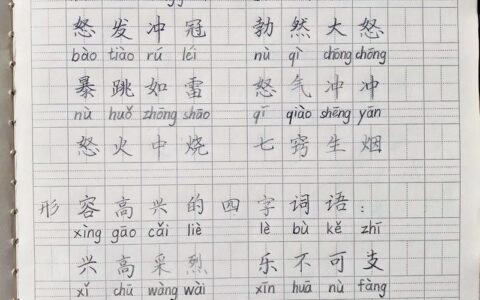 怒发冲冠 勃然大怒
bào tiào rú léi nù qì chōng chōng
暴跳如雷 怒气冲冲
nù huǒ zhōng shāo qī qiào shēng yān
怒火中烧 七窍生烟
形容高兴的四字词语：
xìng gāo cǎi liè lè bù kě zhī
兴高采烈 乐不可支
xǐ chū wàng wài xīn huā nù fàng